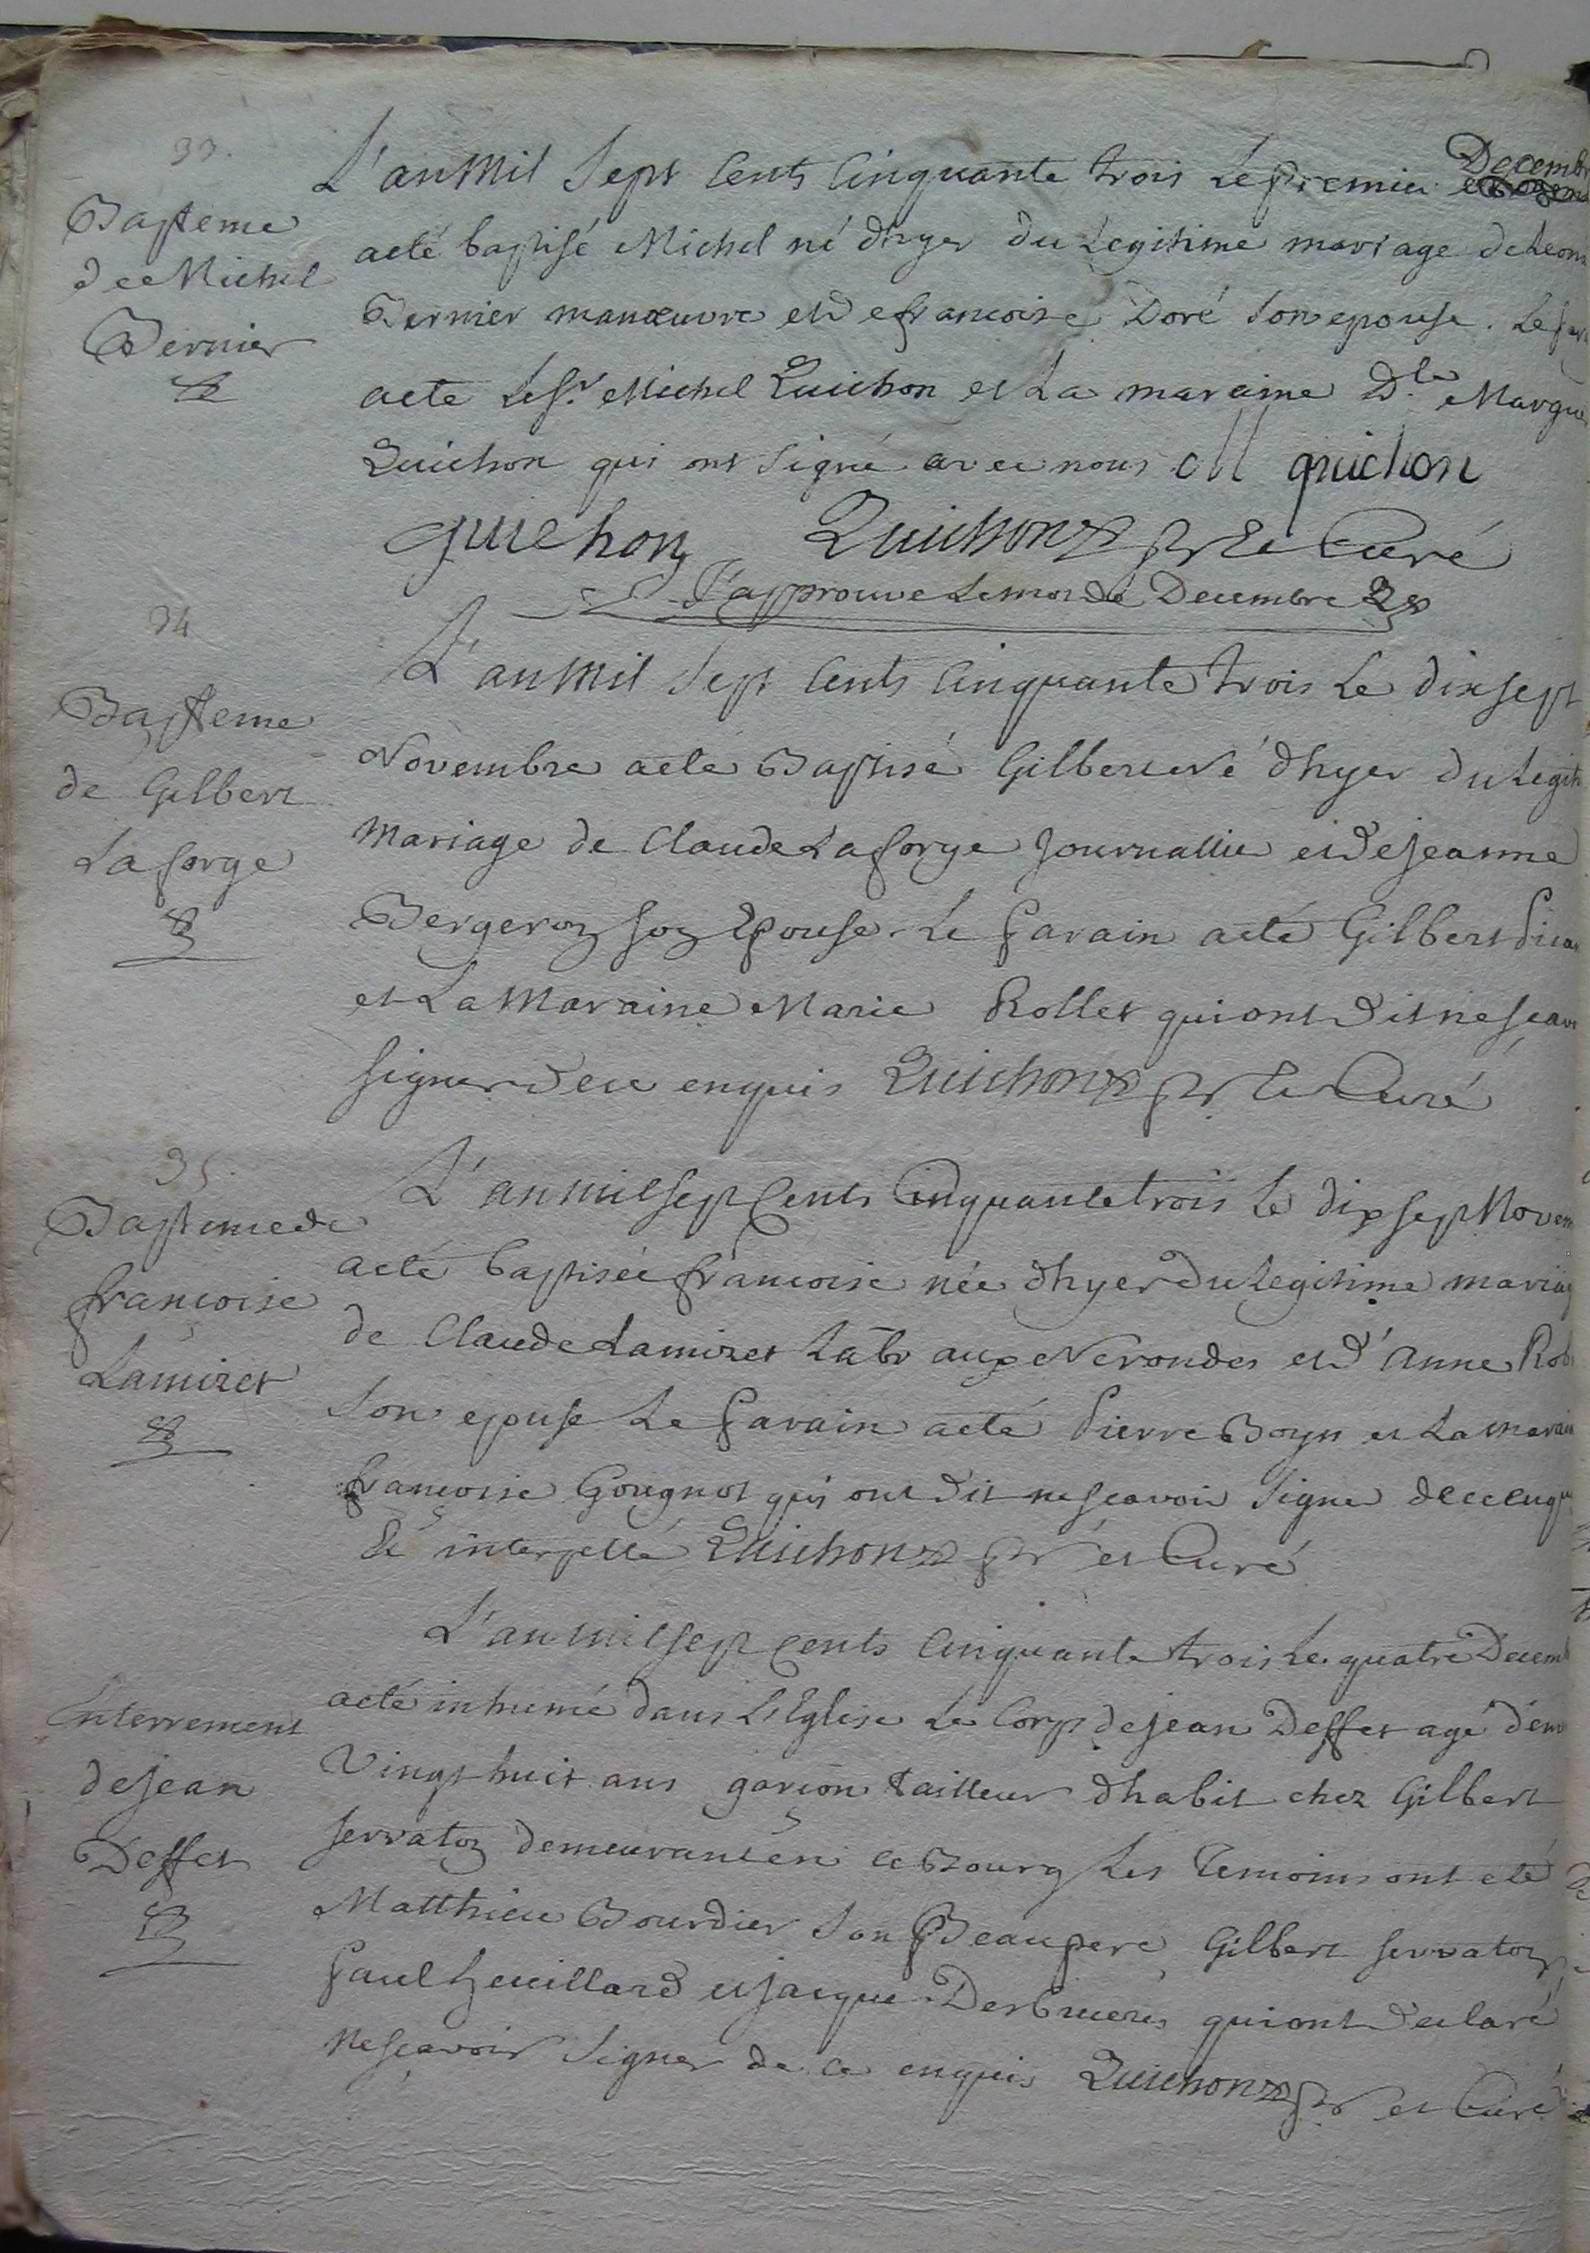 33.
Bapteme
de Michel
Bernier
L'an Mil Sept Cents Cinquante trois Le premier Decemb
acté baptisé Michel né d'hyer du Legitime mariage de Leon
Bernier manœuvre et de francoise Doré Son epouse. Le par
acte Le Sr. Michel Quichon et La maraine Dlle Margue
Quichon qui ont Signé avec nous M quichon
quichon Quichon Ptr et Curé
J'approuve Le mot de Decembre
34
Bapteme
de Gilbert
Laforge
L'an Mil Sept Cents Cinquante trois Le dix sept
Novembre acté Baptisé Gilbert Né d'hyer du Legiti
Mariage de Claude Laforge Journallier et de jeanne
Bergeron son Epouse. Le parain acté Gilbert
et La Maraine Marie Rollet qui ont dit ne sçavo
signer de ce enquis Quichon Ptr et Curé
35.
Bapteme de
françoise
Lamiret
L'an mil sept Cents Cinquante trois Le dix sept Novem
acté baptisée françoise née d'hyer du Legitime mariag
de Claude Lamiret Labr aux Nerondes et d'Anne Rob
Son epouse Le parain acté Pierre Boyn et La marain
françoise Gougnot qui ont dit ne sçavoir Signer de ce enqui
et interpellé Quichon Ptr et Curé
Enterrement
de jean
Deffet
L'an mil sept Cents Cinquante trois Le quatre Decemb
acté inhumé dans L'Eglise Le Corps de jean Deffet agé d'env
Vingt huit ans garçon tailleur d'habit chez Gilbert
servaton demeurant en ce Bourg Les Temoins ont eté
Matthieu Bourdier Son Beaupere, Gilbert servaton,
paul heuillard et jacque Desbrueres qui ont declaré
ne sçavoir Signer de ce enquis Quichon Ptr et Curé